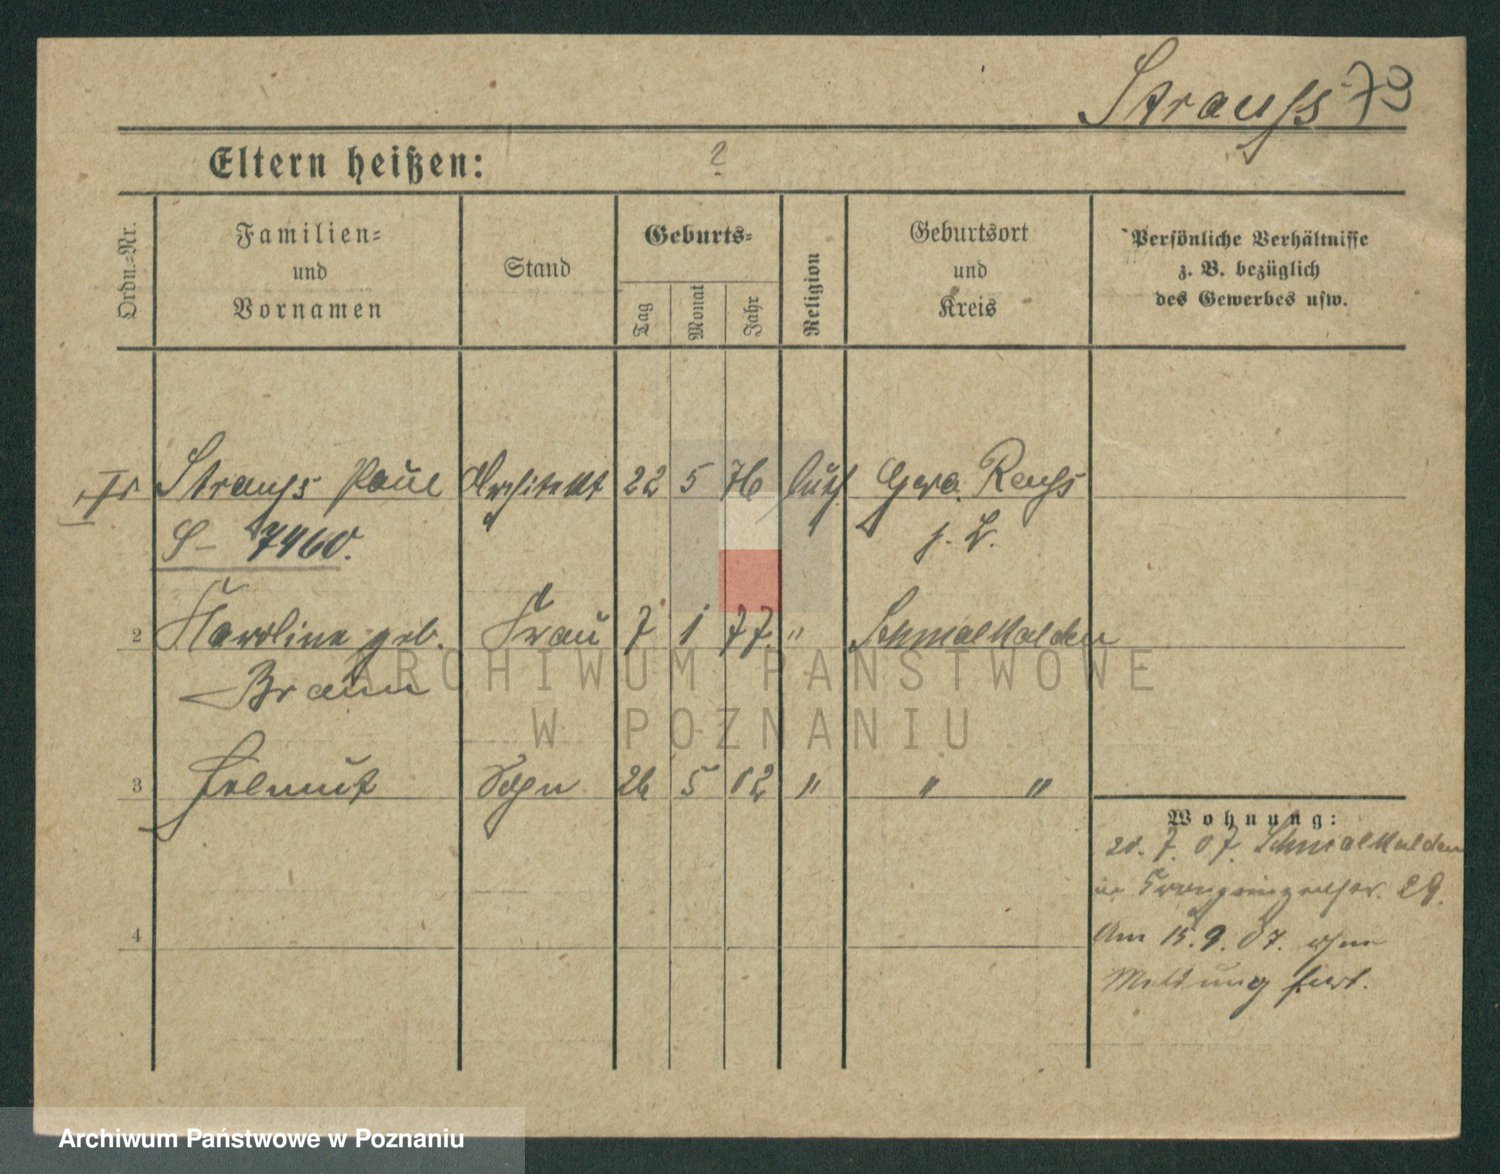 Strauss 73
Eltern heißen: ?
Ordn.-Nr.
Familien-
und
Vornamen
Stand
Geburts-
Tag
Monat
Jahr
Religion
Geburtsort
und
Kreis
Persönliche Verhältnisse
z. B. bezüglich
des Gewerbes usw.
Strauss Paul Architekt 22 5 76 luth Gera Reuss
S- 7460. j. L.
2 Karoline geb. Frau 7 1 77. " Schmalkalden
Braun
3 Helmut Sohn 26 5 02 " " "
Wohnung:
7. 07. Schmalkalden
29.
4
Am 15. 9. 07. ohne
Meldung fort.
ARCHIWUM PAŃSTWOWE
W POZNANIU
Archiwum Państwowe w Poznaniu